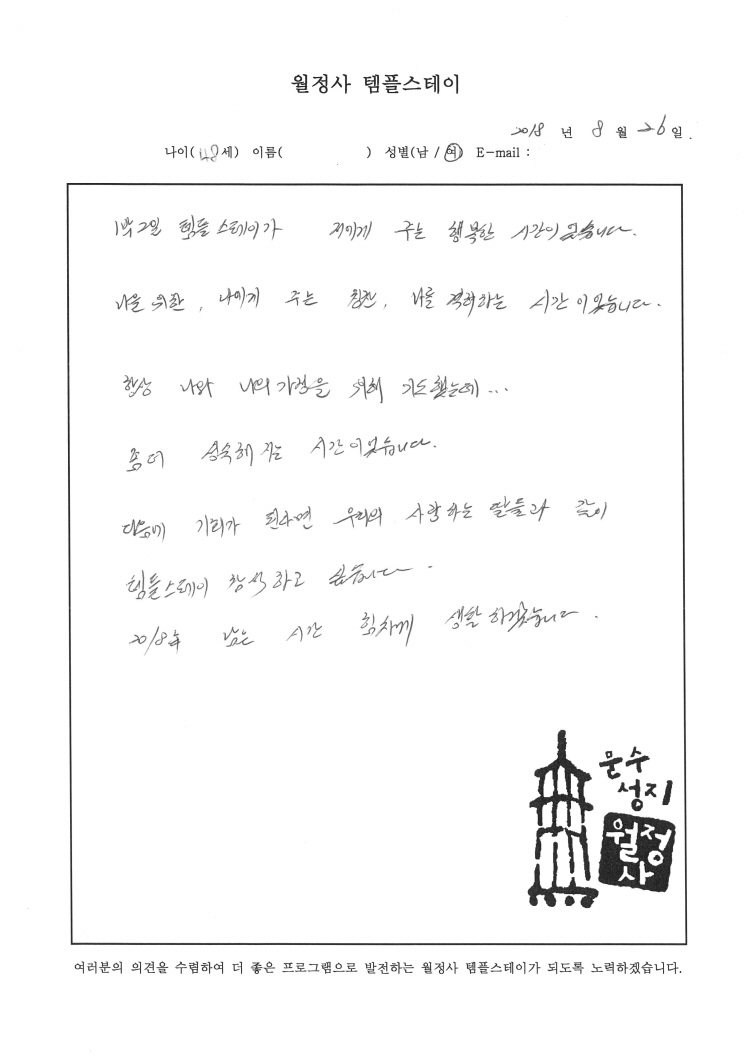 월정사 템플스테이
2018 년 8 월 26 일.
나이( 48 세) 이름( ) 성별(남 / 여) E-mail :
1박2일 템플스테이가 저에게 주는 행복한 시간이였습니다.
나을 위한, 나에게 주는 칭찬, 나를 격려하는 시간이였습니다.
항상 나와 나의 가족을 위해 기도했는데...
좀더 성숙해 지는 시간이였습니다.
다음에 기회가 된다면 우리의 사랑하는 딸들과 같이
템플스테이 참석하고 싶습니다.
2018年 남은 시간 힘차게 생활 하겠습니다.
문수
성지
월정
사
여러분의 의견을 수렴하여 더 좋은 프로그램으로 발전하는 월정사 템플스테이가 되도록 노력하겠습니다.